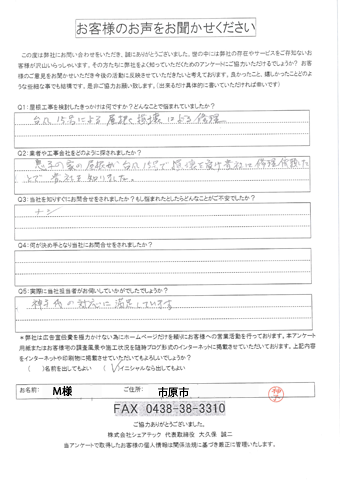 お客様のお声をお聞かせください
この度は弊社にお問い合わせをいただき、誠にありがとうございました。世の中には弊社の存在やサービスをご存知ないお
客様が沢山いらっしゃいます。その方たちに弊社をよく知っていただくためのアンケートにご協力いただけるでしょうか？お客
様のご意見をお聞かせいただき今後の活動に反映させていただきたいと考えております。良かったこと、嬉しかったことどのよ
うな些細な事でも結構です。是非ご協力お願い致します。(出来るだけ具体的に書いていただければ幸いです)
Q1：屋根工事を検討したきっかけは何ですか？どんなことで悩まれていましたか？
台風15号による屋根
による修理
Q2：業者や工事会社をどのように探されましたか？
息子の家の屋根が台風15号で損傷を受け貴社に修理依頼した
ことで貴社を知りました。
Q3：当社を知りすぐにお問合せをされましたか？もし悩まれたとしたらどんなことがご不安でしたか？
ナシ
Q4：何が決め手となり当社にお問合せをされましたか？
Q5：実際に当社担当者がお伺いしていかがでしたでしょうか？
神子様の対応に満足しています
＊弊社は広告宣伝費を極力かけない為にホームページだけを頼りにお客様への営業活動を行っております。本アンケート
用紙またはお客様宅の調査風景や施工状況を随時ブログ形式のインターネットに掲載させていただいております。上記内容
をインターネットや印刷物に掲載させていただいてもよろしいでしょうか？
( )名前を出してもよい (✓)イニシャルなら出してもよい
お名前： M様 ご住所： 市原市
FAX 0438-38-3310
ご協力ありがとうございました。
株式会社シェアテック 代表取締役 大久保 誠二
当アンケートで取得したお客様の個人情報は関係法規に基づき厳正に管理いたします。